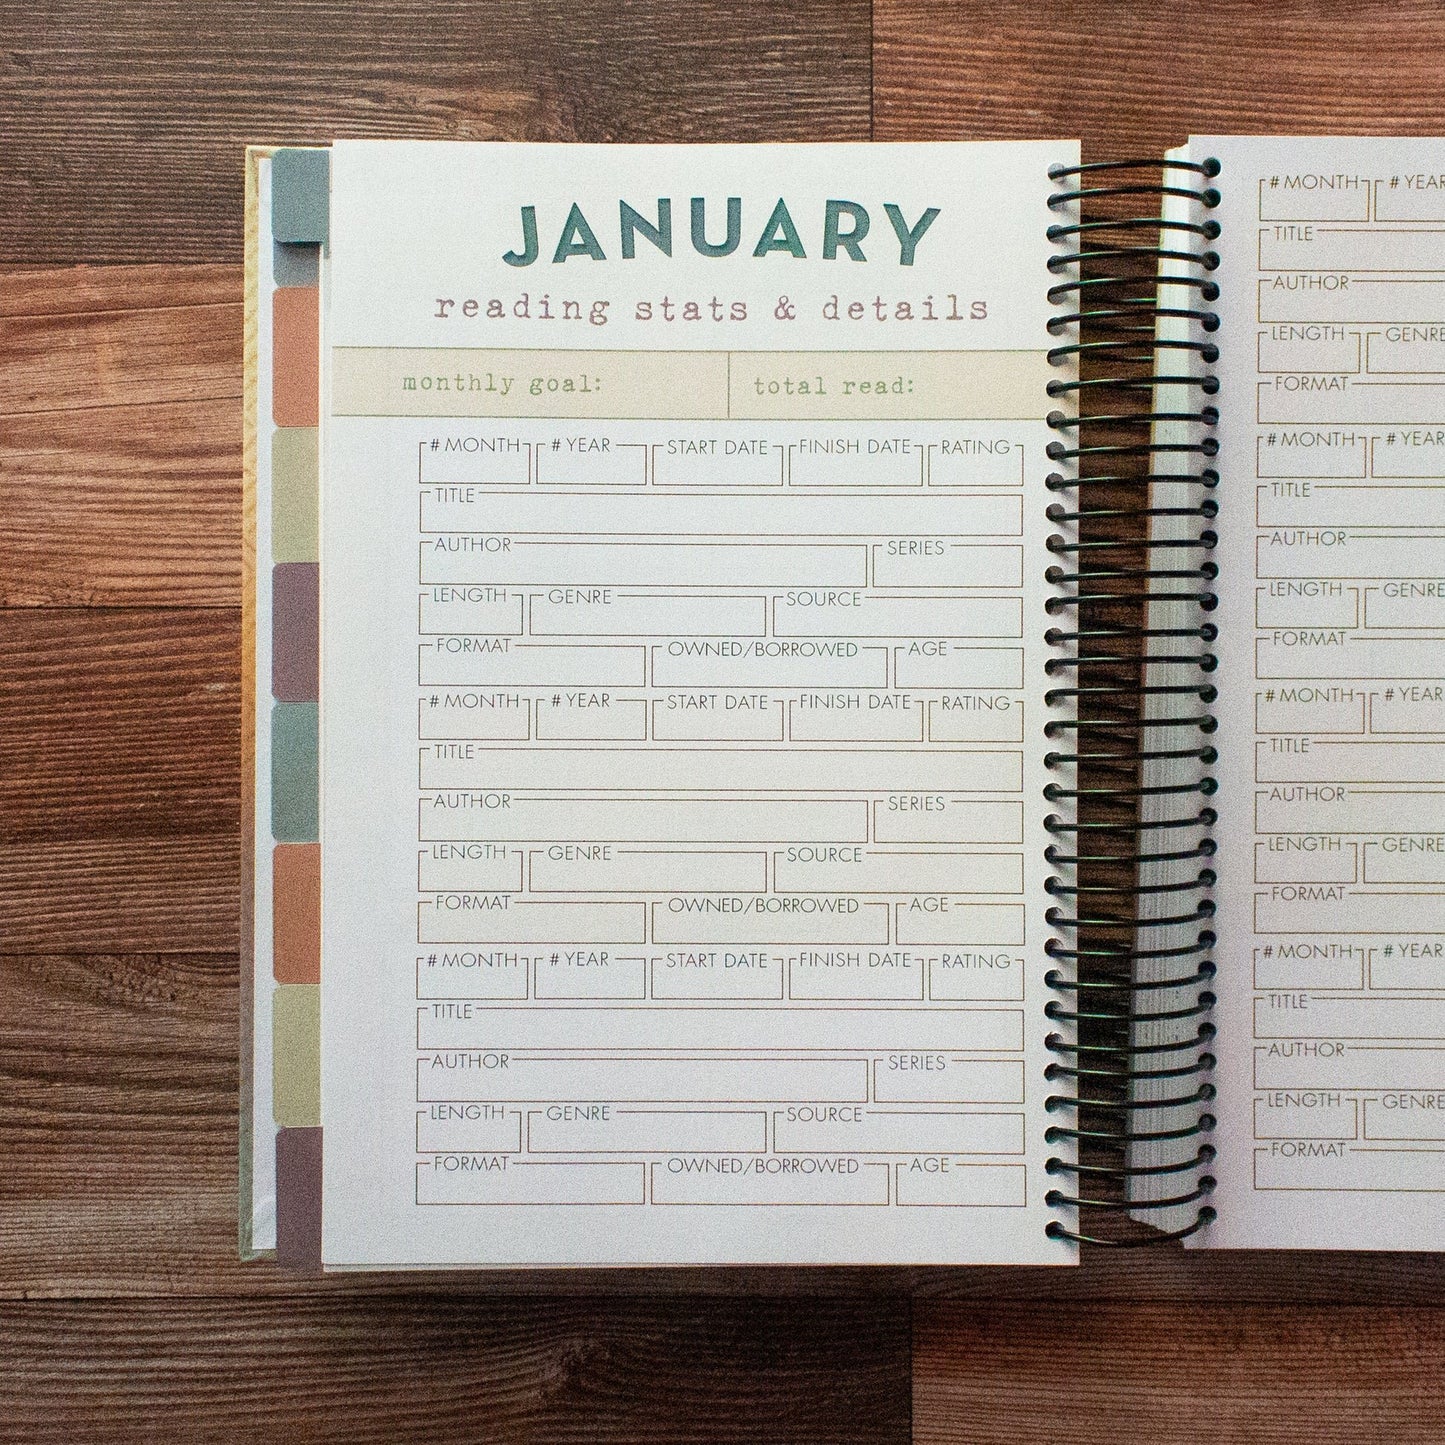 JANUARY
reading stats & details
monthly goal: total read:
# MONTH # YEAR START DATE FINISH DATE RATING
TITLE
AUTHOR SERIES
LENGTH GENRE SOURCE
FORMAT OWNED/BORROWED AGE
# MONTH # YEAR START DATE FINISH DATE RATING
TITLE
AUTHOR SERIES
LENGTH GENRE SOURCE
FORMAT OWNED/BORROWED AGE
# MONTH # YEAR START DATE FINISH DATE RATING
TITLE
AUTHOR SERIES
LENGTH GENRE SOURCE
FORMAT OWNED/BORROWED AGE
# MONTH # YEAR
TITLE
AUTHOR
LENGTH GENRE
FORMAT
# MONTH # YEAR
TITLE
AUTHOR
LENGTH GENRE
FORMAT
# MONTH # YEAR
TITLE
AUTHOR
LENGTH GENRE
FORMAT
# MONTH # YEAR
TITLE
AUTHOR
LENGTH GENRE
FORMAT